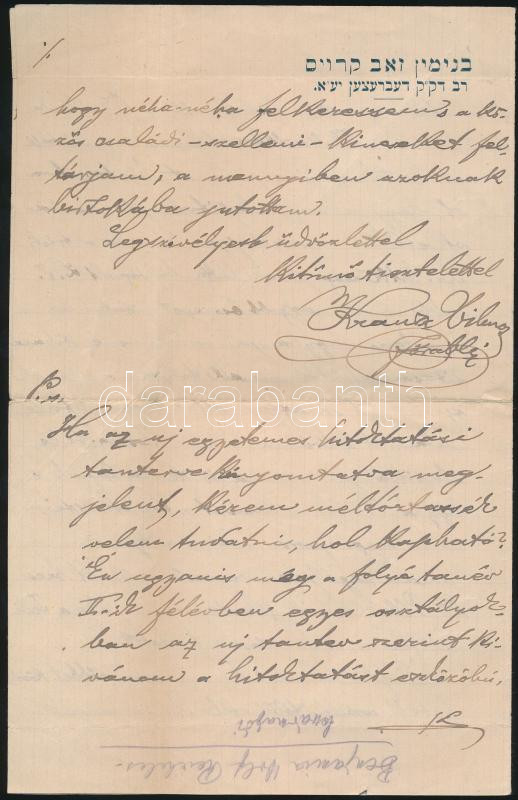 ./.
בנימין זאב קרויס
רב דק״ק דעברעצען יע״א.
hogy néha-néha felkeressem s a kö-
zös családi-szellemi-kincseket fel-
tárjam, a mennyiben azoknak
birtokába jutottam.
Legszivélyesb üdvözlettel
Kitünő tisztelettel
Krausz Vilmos
főrabbi
P.s.
Ha az uj egyetemes hitoktatási
tanterv kinyomtatva meg-
jelent, kérem méltóztassék
velem tudatni, hol kapható?
Én ugyanis még a folyó tanév
II-ik felében egyes osztályok-
ban az uj tanterv szerint ki-
vánom a hitoktatást eszközölni.
K
Benjamin Wolf
darabanth